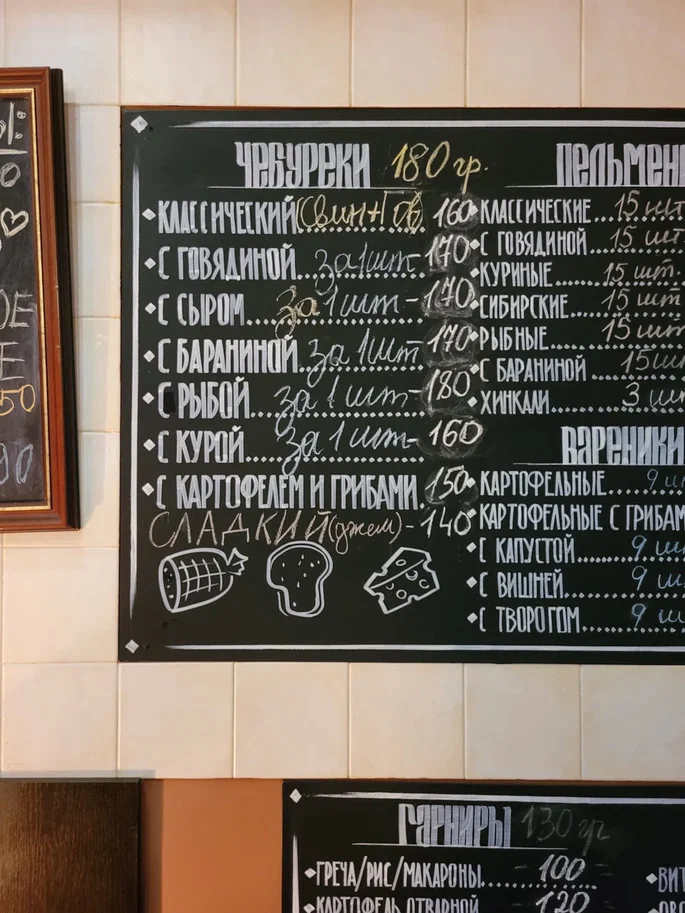 ЧЕБУРЕКИ 180 гр.
КЛАССИЧЕСКИЙ (Свин+Гов) 160
С ГОВЯДИНОЙ... за 1 шт - 170
С СЫРОМ... за 1 шт - 170
С БАРАНИНОЙ... за 1 шт - 170
С РЫБОЙ... за 1 шт - 180
С КУРОЙ... за 1 шт - 160
С КАРТОФЕЛЕМ И ГРИБАМИ 150
СЛАДКИЙ (джем) - 140
ПЕЛЬМЕН
КЛАССИЧЕСКИЕ... 15 шт
С ГОВЯДИНОЙ... 15 шт.
КУРИНЫЕ... 15 шт.
СИБИРСКИЕ... 15 шт
РЫБНЫЕ... 15 шт
С БАРАНИНОЙ... 15 ш
ХИНКАЛИ... 3 шт
ВАРЕНИКИ
КАРТОФЕЛЬНЫЕ... 9 ш
КАРТОФЕЛЬНЫЕ С ГРИБАМ
С КАПУСТОЙ... 9 ш
С ВИШНЕЙ... 9 ш
С ТВОРОГОМ... 9 ш
ГАРНИРЫ 130 гр
ГРЕЧА/РИС/МАКАРОНЫ... - 100 -
КАРТОФЕЛЬ ОТВАРНОЙ - 120
ВИТ